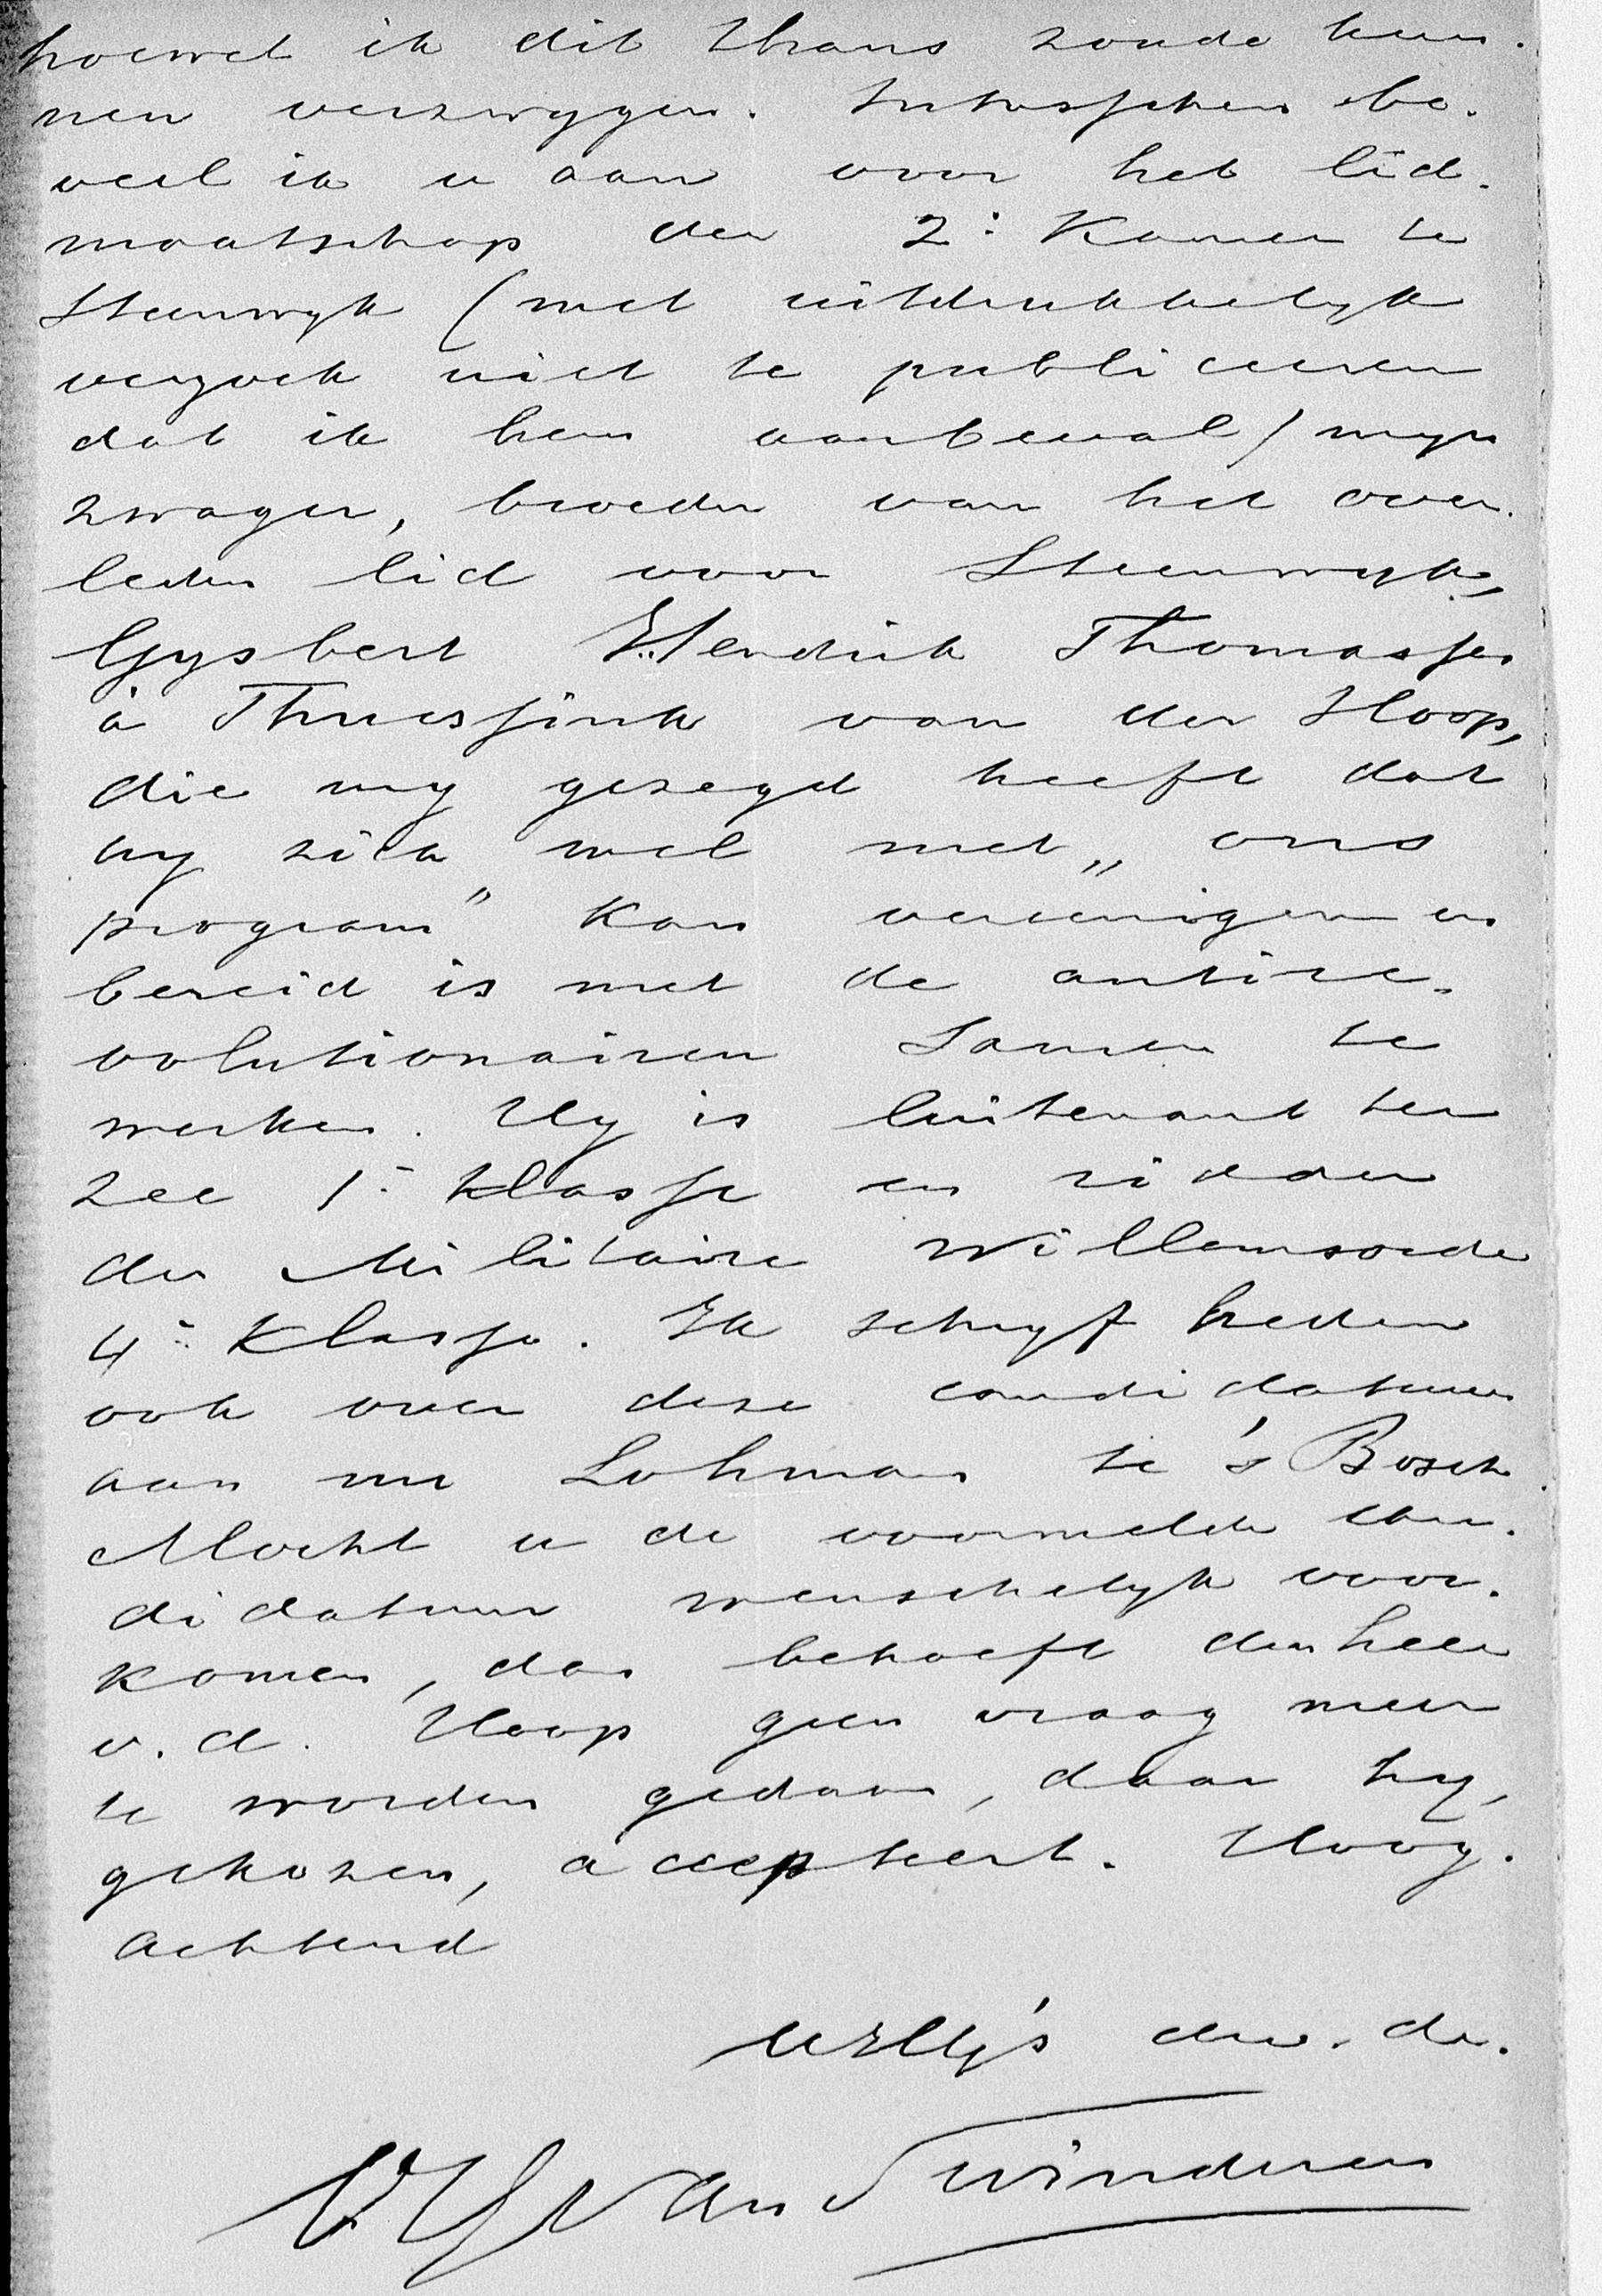 hoewel ik dit thans zoude kun-
nen verzwygen. Intusschen be-
veel ik u aan voor het lid-
maatschap der 2e Kamer te
Steenwyk (met uitdrukkelyk
verzoek niet te publiceeren
dat ik hem aanbeval) myn
zwager, broeder van het over-
leden lid voor Steenwyk,
Gysbert Hendrik Thomasse
à Thuessink van der Hoop,
die my gezegd heeft dat
hy zich wel met „ons
program” kan vereenigen en
bereid is met de antire-
volutionairen samen te
werken. Hy is luitenant ter
zee 1e klasse en ridder
der Militaire Willemsorde
4e klasse. Ik schryf heden
ook over deze candidatuur
aan mr Lohman te 's Bosch.
Mocht u de voormelde can-
didatuur wenschelyk voor-
komen, dan behoeft den heer
v. d. Hoop geen vraag meer
te worden gedaan, daar hy,
gekozen, accepteert. Hoog-
achtend
UEHG's dw. dr.
van Swinderen